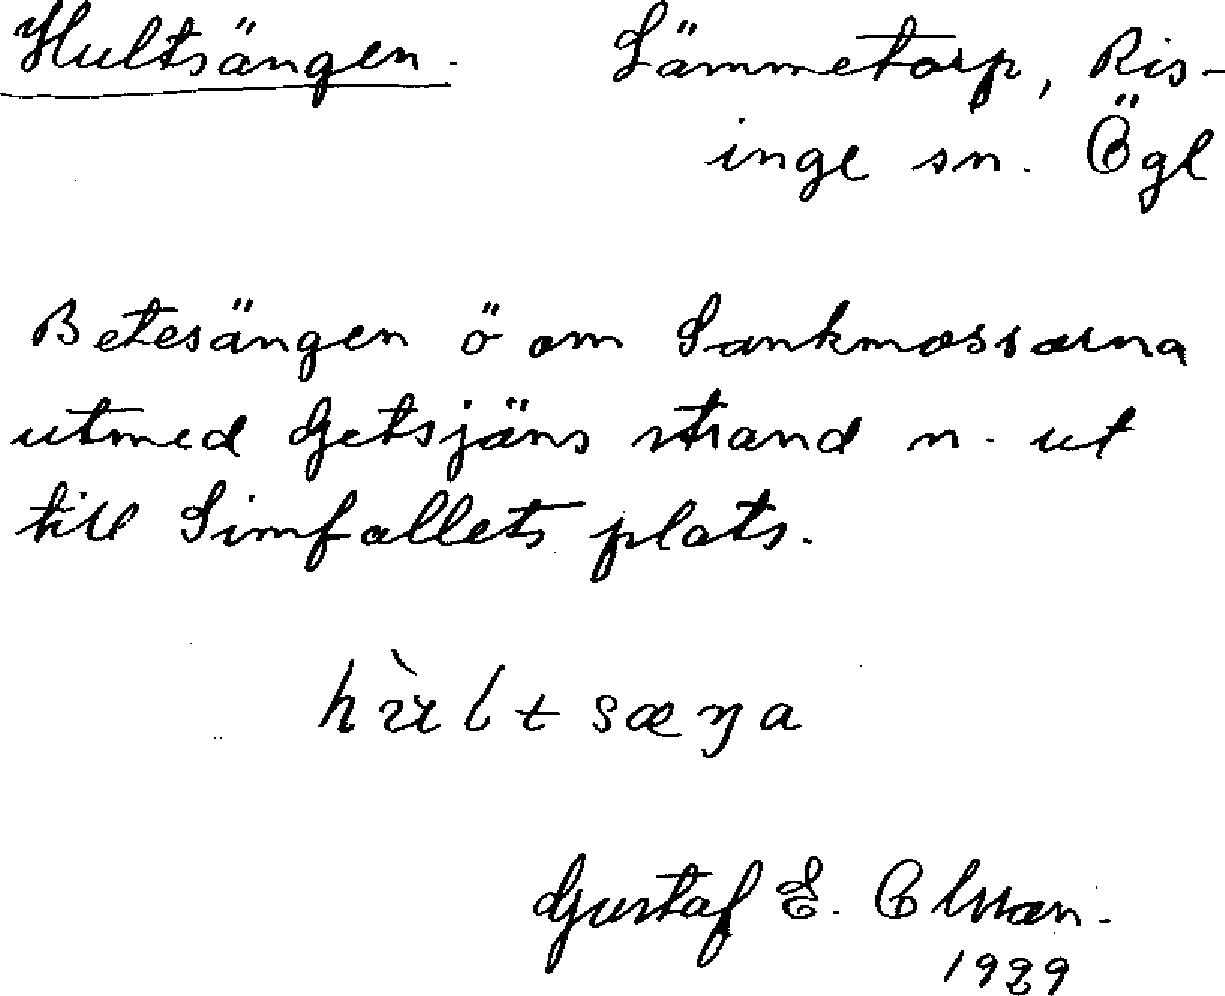 Hultsängen. Sämmetorp, Ris-
inge sn. Ögl
Betesängen ö om Sankmossarna
utmed Getsjöns strand n. ut
till Simfallets plats.
hùltsæŋa
Gustaf E. Olsson.
1929